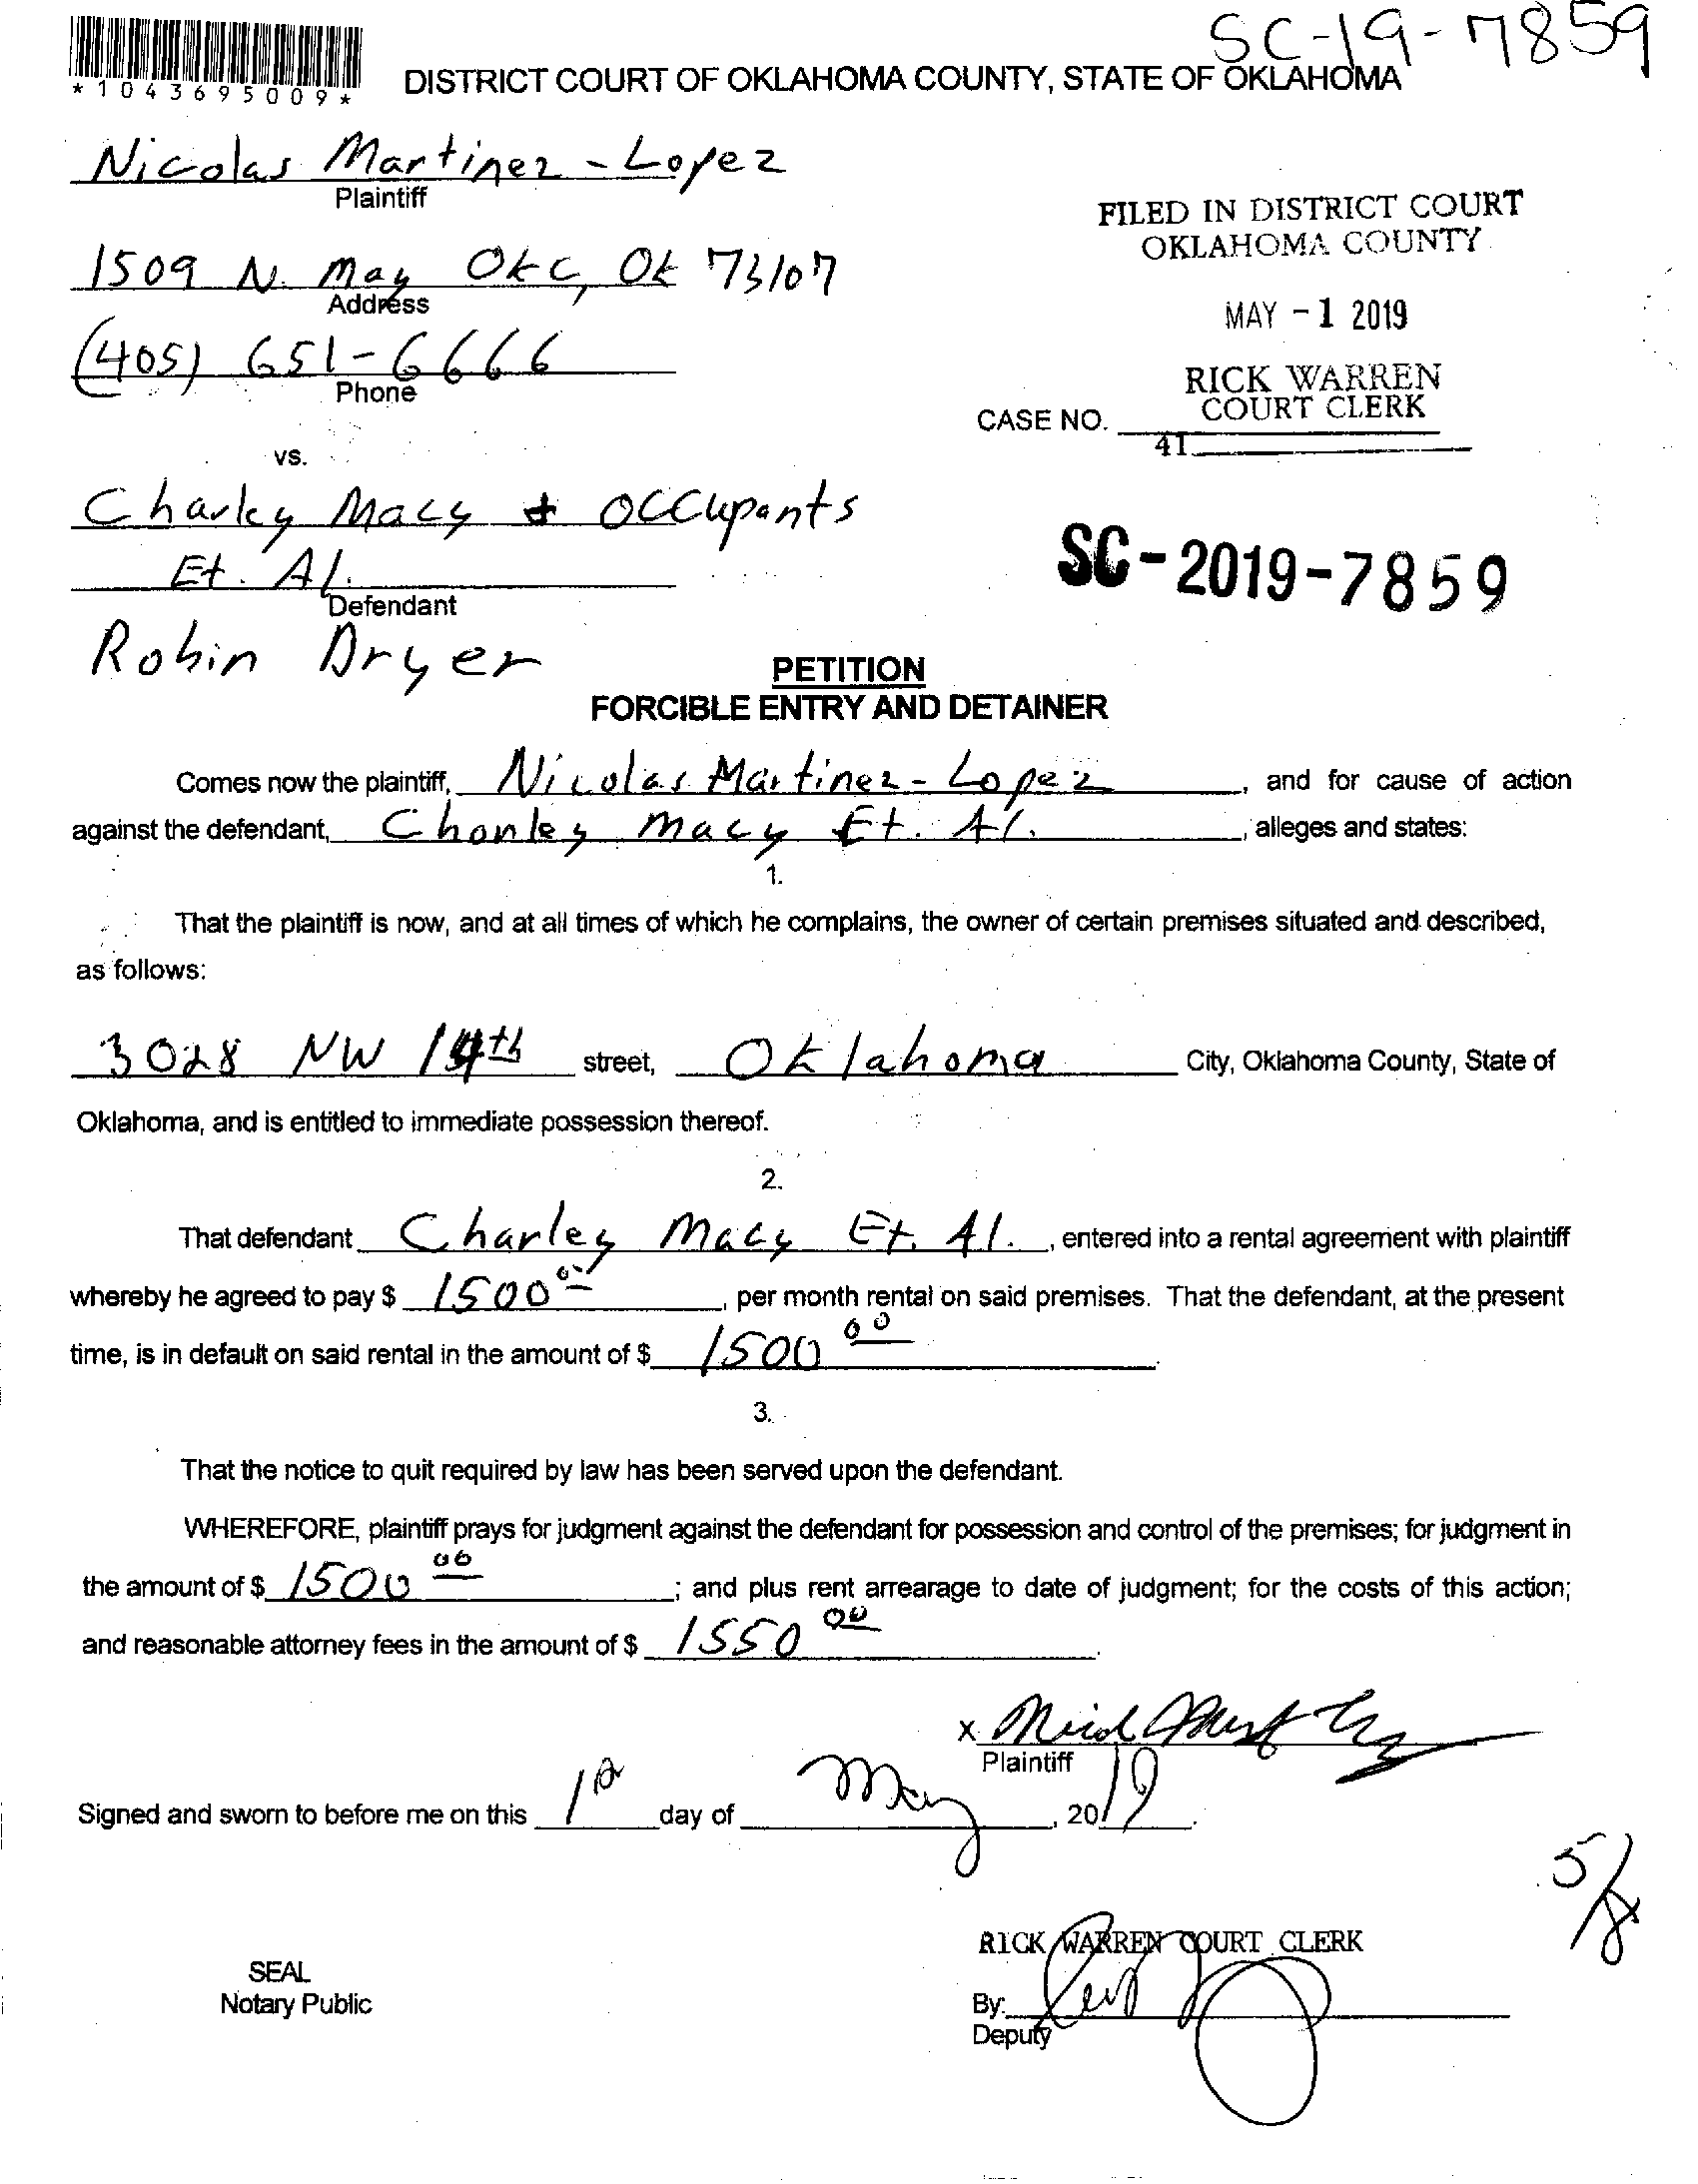 SC-19-7859
*1043695009*
DISTRICT COURT OF OKLAHOMA COUNTY, STATE OF OKLAHOMA
Nicolas Martinez-Lopez
Plaintiff
FILED IN DISTRICT COURT
OKLAHOMA COUNTY
1509 N. May OKC, Ok 73107
Address
MAY -1 2019
(405) 651-6666
Phone
RICK WARREN
COURT CLERK
CASE NO.
41
vs.
Charley Macy + Occupants
Et. Al.
Defendant
SC-2019-7859
Robin Dryer
PETITION
FORCIBLE ENTRY AND DETAINER
Comes now the plaintiff, Nicolas Martinez-Lopez, and for cause of action
against the defendant, Charley Macy Et. Al., alleges and states:
1.
That the plaintiff is now, and at all times of which he complains, the owner of certain premises situated and described,
as follows:
3028 NW 14th street, Oklahoma City, Oklahoma County, State of
Oklahoma, and is entitled to immediate possession thereof.
2.
That defendant Charley Macy Et. Al., entered into a rental agreement with plaintiff
whereby he agreed to pay $ 1500 00, per month rental on said premises. That the defendant, at the present
time, is in default on said rental in the amount of $ 1500 00.
3.
That the notice to quit required by law has been served upon the defendant.
WHEREFORE, plaintiff prays for judgment against the defendant for possession and control of the premises; for judgment in
the amount of $ 1500 00; and plus rent arrearage to date of judgment; for the costs of this action;
and reasonable attorney fees in the amount of $ 1550 00.
x
Plaintiff
Signed and sworn to before me on this 1st day of May, 2019.
5/8
RICK WARREN COURT CLERK
SEAL
Notary Public
By:
Deputy